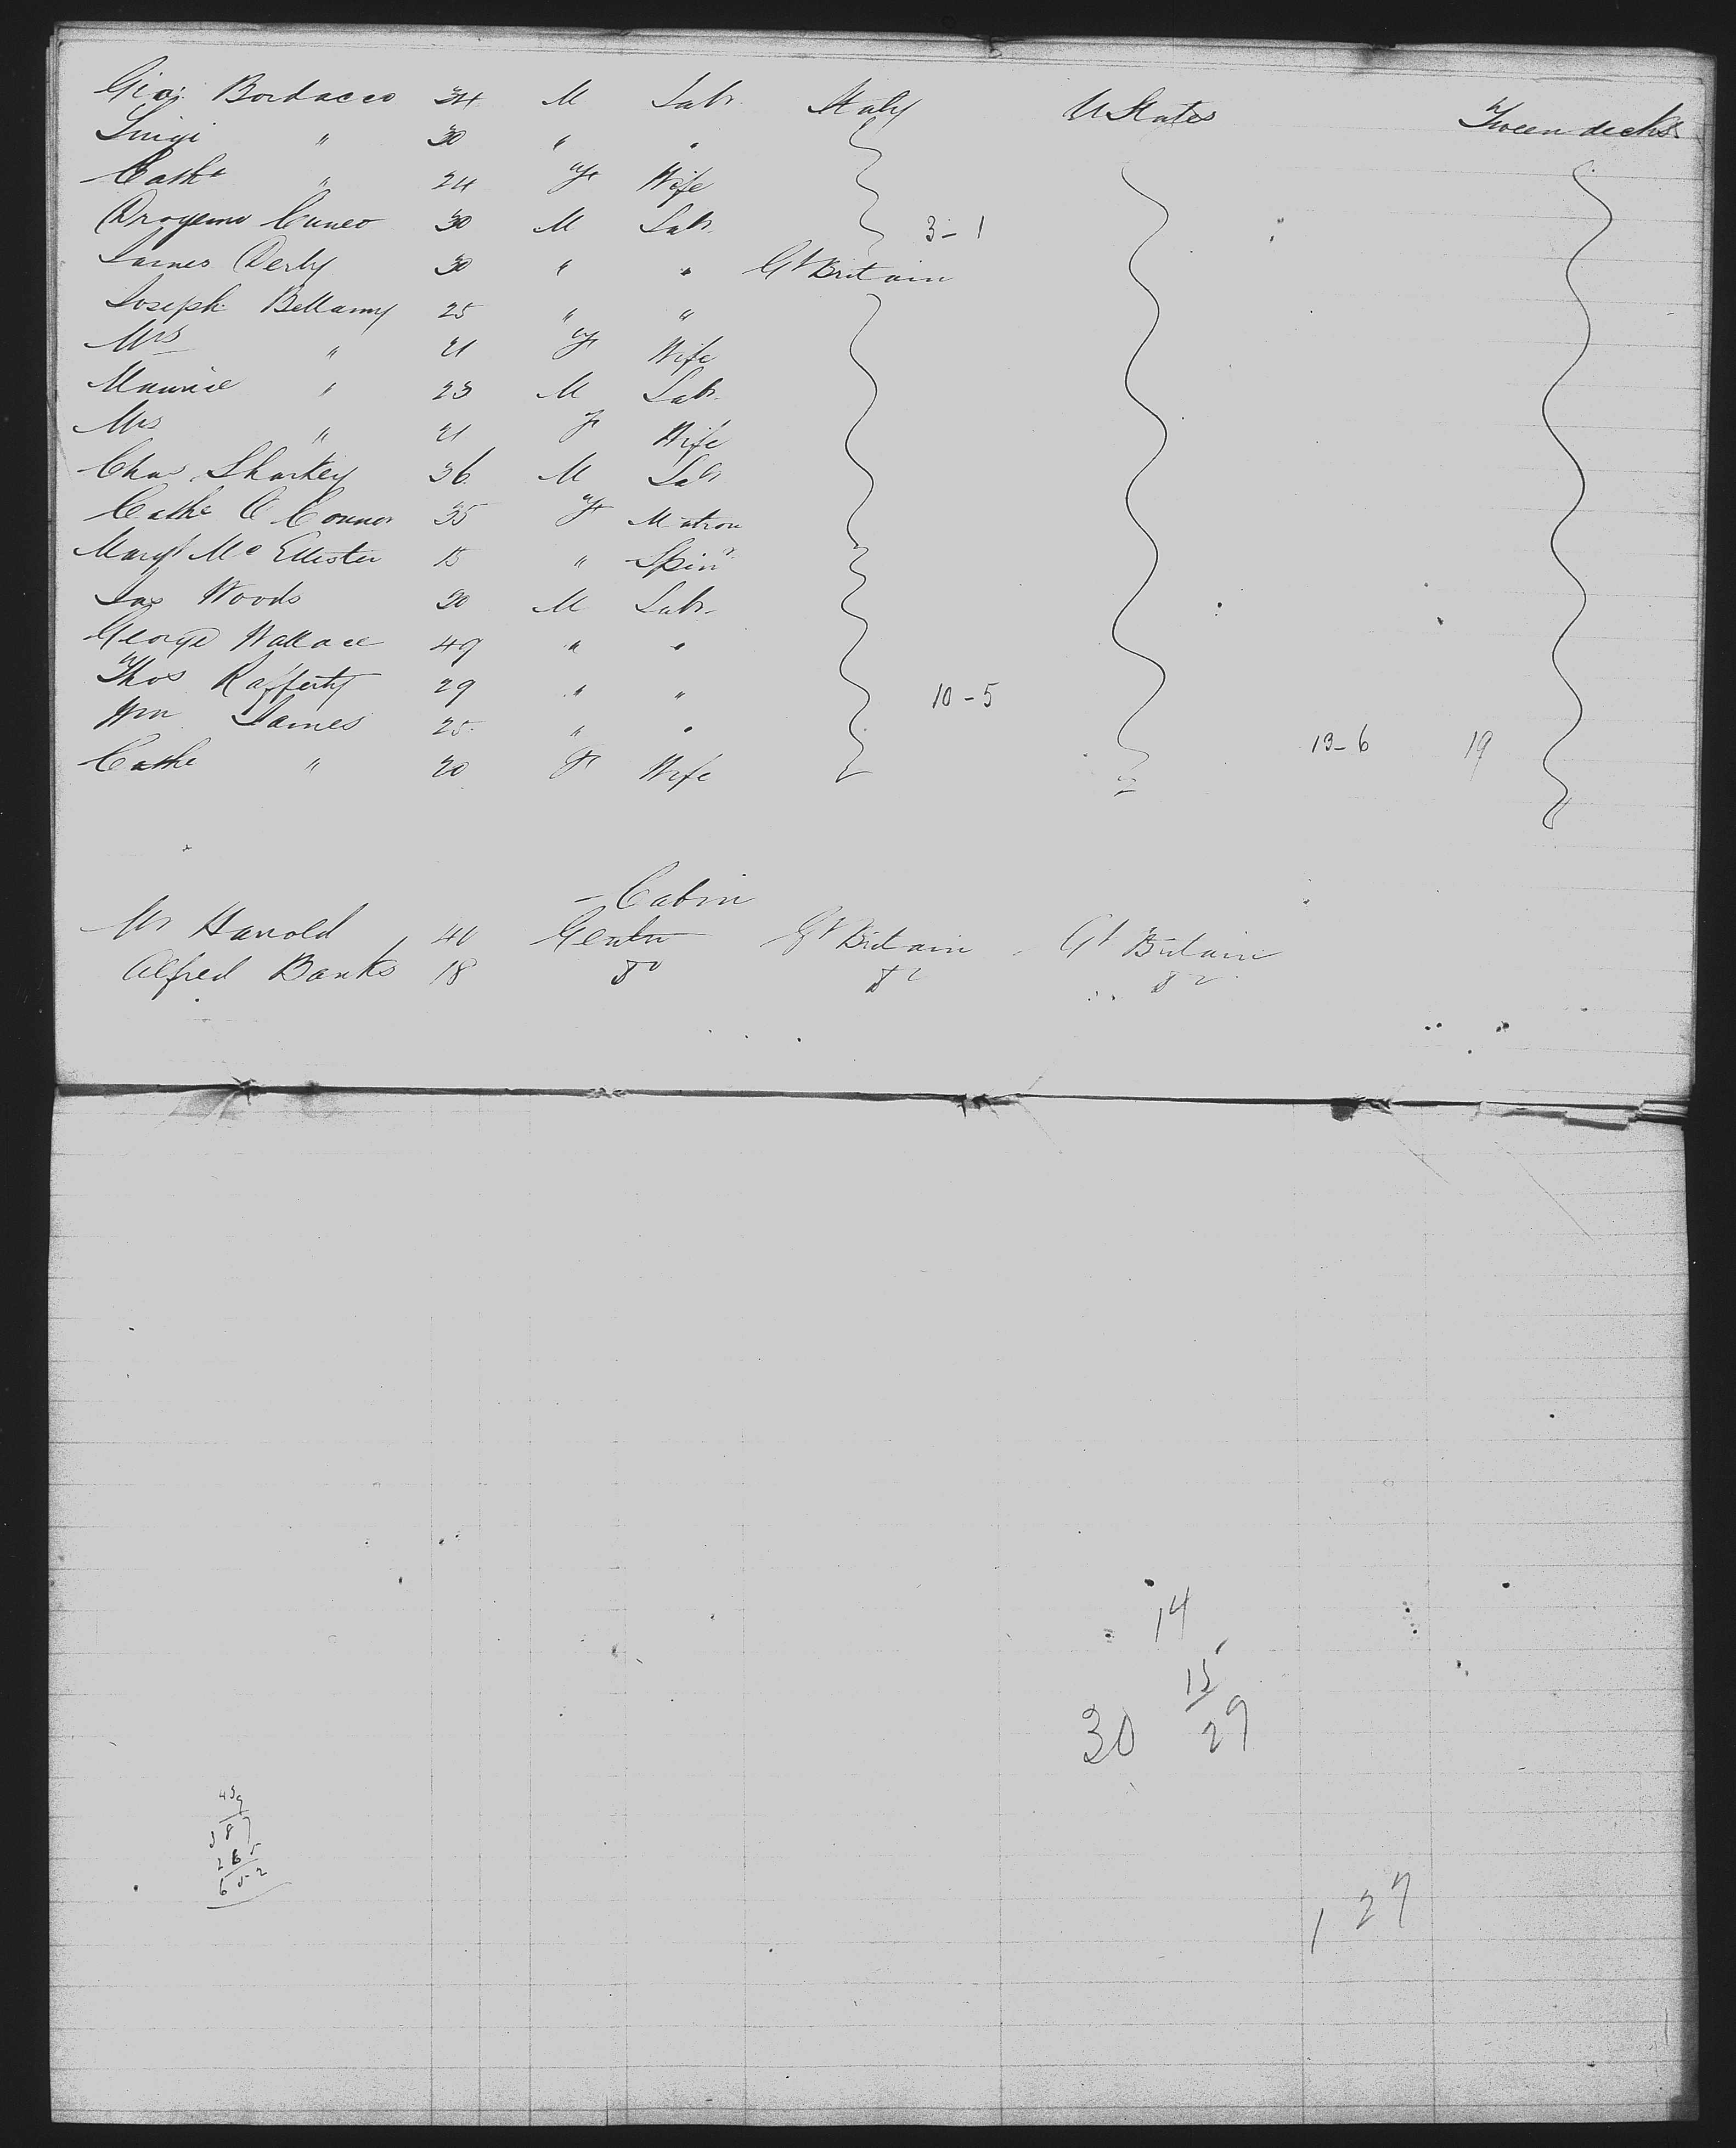 Gio: Bordacco 34 M Labr. Italy U States Tween decks
Luigi " 30 " "
Cathe " 24 F Wife
Cuneo 30 M Labr. 3-1
James Derby 30 " " Gt Britain
Joseph Bellamy 25 " "
Mrs " 21 F Wife
Maurice " 23 M Labr.
Mrs " 21 F Wife
Chas Sharkey 36 M Labr
Cathe O Connor 35 F Matron
Margt Mc Ellister 18 " Spinr
Jas Woods 20 M Labr.
George Wallace 49 " "
Thos Rafferty 29 " " 10-5
Wm James 25 " " 13-6 19
Cathe " 20 F Wife
Cabin
Mr Harrold 40 Gentn Gt Britain Gt Britain
Alfred Banks 18 do do do
14
15
30 29
439
387
265
652
127